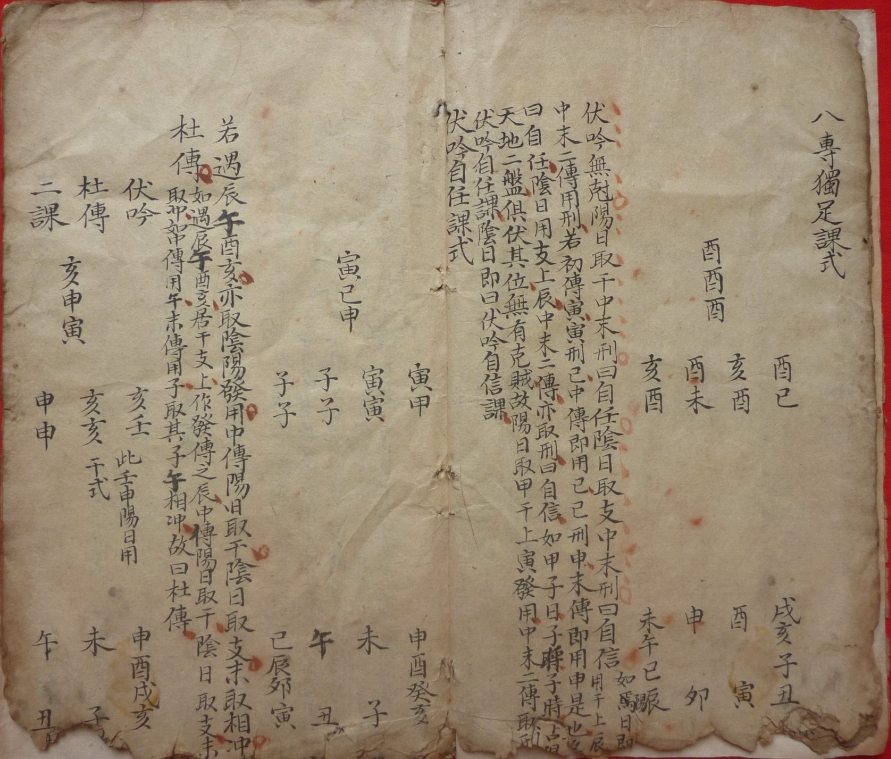 八專獨足課式
酉酉酉
酉已
亥酉
酉未
亥酉
戌亥子丑
酉 寅
申 卯
未午巳辰
伏吟無尅陽日取干中末刑曰自任陰日取支中末刑曰自信
中末二傳用刑若初傳寅寅刑巳中傳即用巳巳刑申末傳即用申是也
曰自任陰日用支上辰中末二傳亦取刑曰自信如甲子日子將子時占
天地二盤俱伏其位無有克賊故陽日取甲干上寅發用中末二傳取刑
伏吟自任課陰日即曰伏吟自信課
伏吟自任課式
寅巳申
寅甲
寅寅
子子
子子
申酉癸亥
未 子
午 丑
巳辰夘寅
若遇辰午酉亥亦取陰陽發用中傳陽日取干陰日取支末取相冲
杜傳 如遇辰午酉亥居干支上作發傳之辰中傳陽日取干陰日取支末
取卯如中傳用午末傳用子取其子午相冲故曰杜傳
伏吟
杜傳
二課
亥申寅
亥壬
亥亥
申申
此壬申陽日用
干式
申酉戌亥
未 子
午 丑